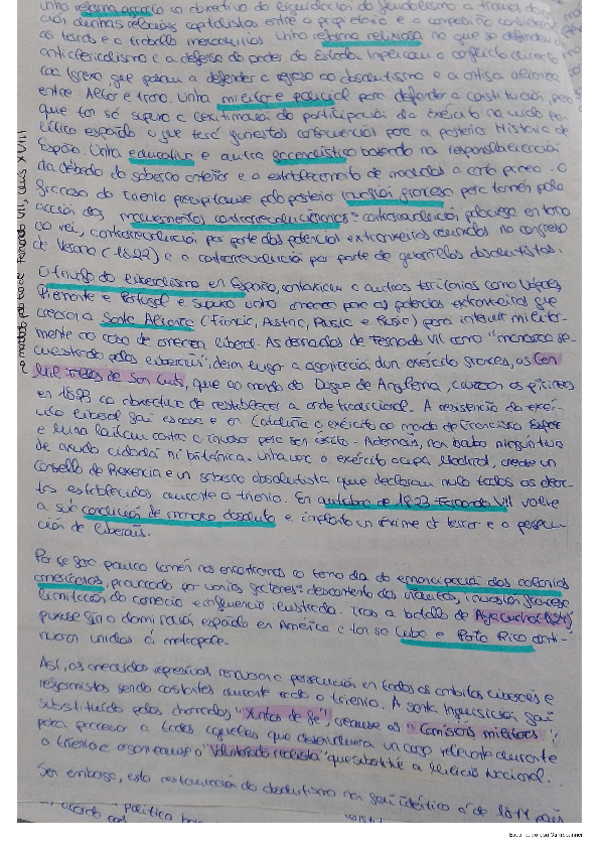 unha reforma agraria co obxectivo da liquidación do feudalismo a través dun
cun dunhas relacións capitalistas entre o propietario e o campesiño
as terras e o traballo mercancías. Unha reforma relixiosa no que se defendeu o
anticlericalismo e a defensa do poder do Estado. Implicou o conflicto directo
coa Igrexa, que pasou a defender o regreso ao absolutismo e a antiga alianza
entre Altar e trono. Unha militar e policial para defender a constitución, pero
que tan só supuxo a lexitimación da participación do exército na vida po-
lítica española o que terá funestas consecuencias para a posterior Historia de
España. Unha educativa e outra facendística baseada na responsabilización
da débeda do goberno anterior e o establecemento de medidas a curto prazo. O
fracaso do trienio precipitouse pola posterior invasión francesa pero tamén pola
acción dos movementos contrarrevolucionarios: contrarrevolución palaciega en torno
ao rei, contrarrevolución por parte das potencias extranxeiras reunidas no congreso
de Verona (1822) e a contrarrevolución por parte de guerrillas absolutistas.
O triunfo do liberalismo en España, contaxiou a outros territorios como Nápoles,
Piamonte e Portugal e supuxo unha ameaza para as potencias extranxeiras que
crearon a Santa Alianza (Francia, Austria, Prusia e Rusia) para intervir militar-
mente no caso de ameaza liberal. As demandas de Fernando VII como "monarca se-
cuestrado polos liberais", deron lugar a aparición dun exército francés, os Cen
Mil Fillos de San Luis, que ao mando do Duque de Angulema, cruzou os pirineos
en 1823 co obxectivo de restablecer a orde tradicional. A resistencia do exér-
cito liberal foi escasa e en Cataluña o exército ao mando de Francisco Espoz
e Mina loitou contra o invasor pero sen éxito. Ademais, non houbo ningún tipo
de axuda cidadá ni británica. Unha vez o exército ocupa Madrid, crease un
Consello de Rexencia e un goberno absolutista que declarou nulo todos os decre-
tos establecidos durante o trienio. En outubro de 1823 Fernando VII volve
a súa condición de monarca absoluto e implanta un réxime de terror e a persecu-
ción de liberais.
Por se fora pouco tamén nos encontramos co tema da emancipación das colonias
americanas, provocado por varios factores: descontento dos criollos, invasión francesa
limitación do comercio e influencia ilustrada. Tras a batalla de Ayacucho (1824)
púxose fin a dominación española en América e tan só Cuba e Porto Rico conti-
nuaron unidos á metrópole.
Así, as medidas represivas renovaron a persecución en todos os ámbitos liberais e
reformistas sendo constantes durante todo o trienio. A santa Inquisición foi
substituída polas chamadas "Xuntas de Fe", creáronse as "Comisións militares"
para procesar a todos aqueles que desenvolveran un cargo relevante durante
o trienio e organizouse o "Voluntariado realista" que substitúe a Milicia Nacional.
Sen embargo, esta restauración do absolutismo non foi idéntica á de 1814 pois
acordo
política
a mandato polo trono Fernando VII, Luis XVIII